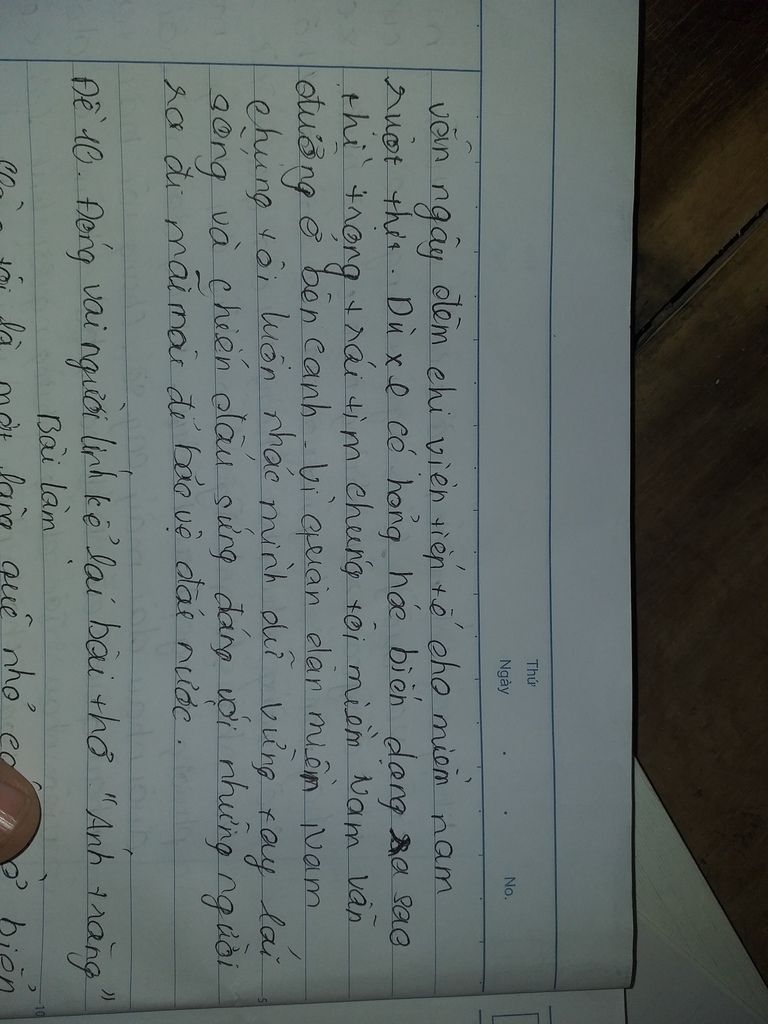 Thứ
Ngày . . No.
vẫn ngày đêm chi viện tiếp tế cho miền nam
ruột thịt. Dù xe có hỏng hóc biến dạng ra sao
thì trong trái tim chúng tôi miền Nam vẫn
đường ở bên cạnh. Vì quân dân miền Nam
chúng tôi luôn nhắc mình dữ vững tay lái
gòng và chiến đấu sứng đáng với những người
ra đi mãi mãi để bảo vệ đất nước.
Đề 10. Đóng vai người lính kể lại bài thơ "Ánh trăng"
Bài làm
tôi là một làng quê nhỏ biển
5
10